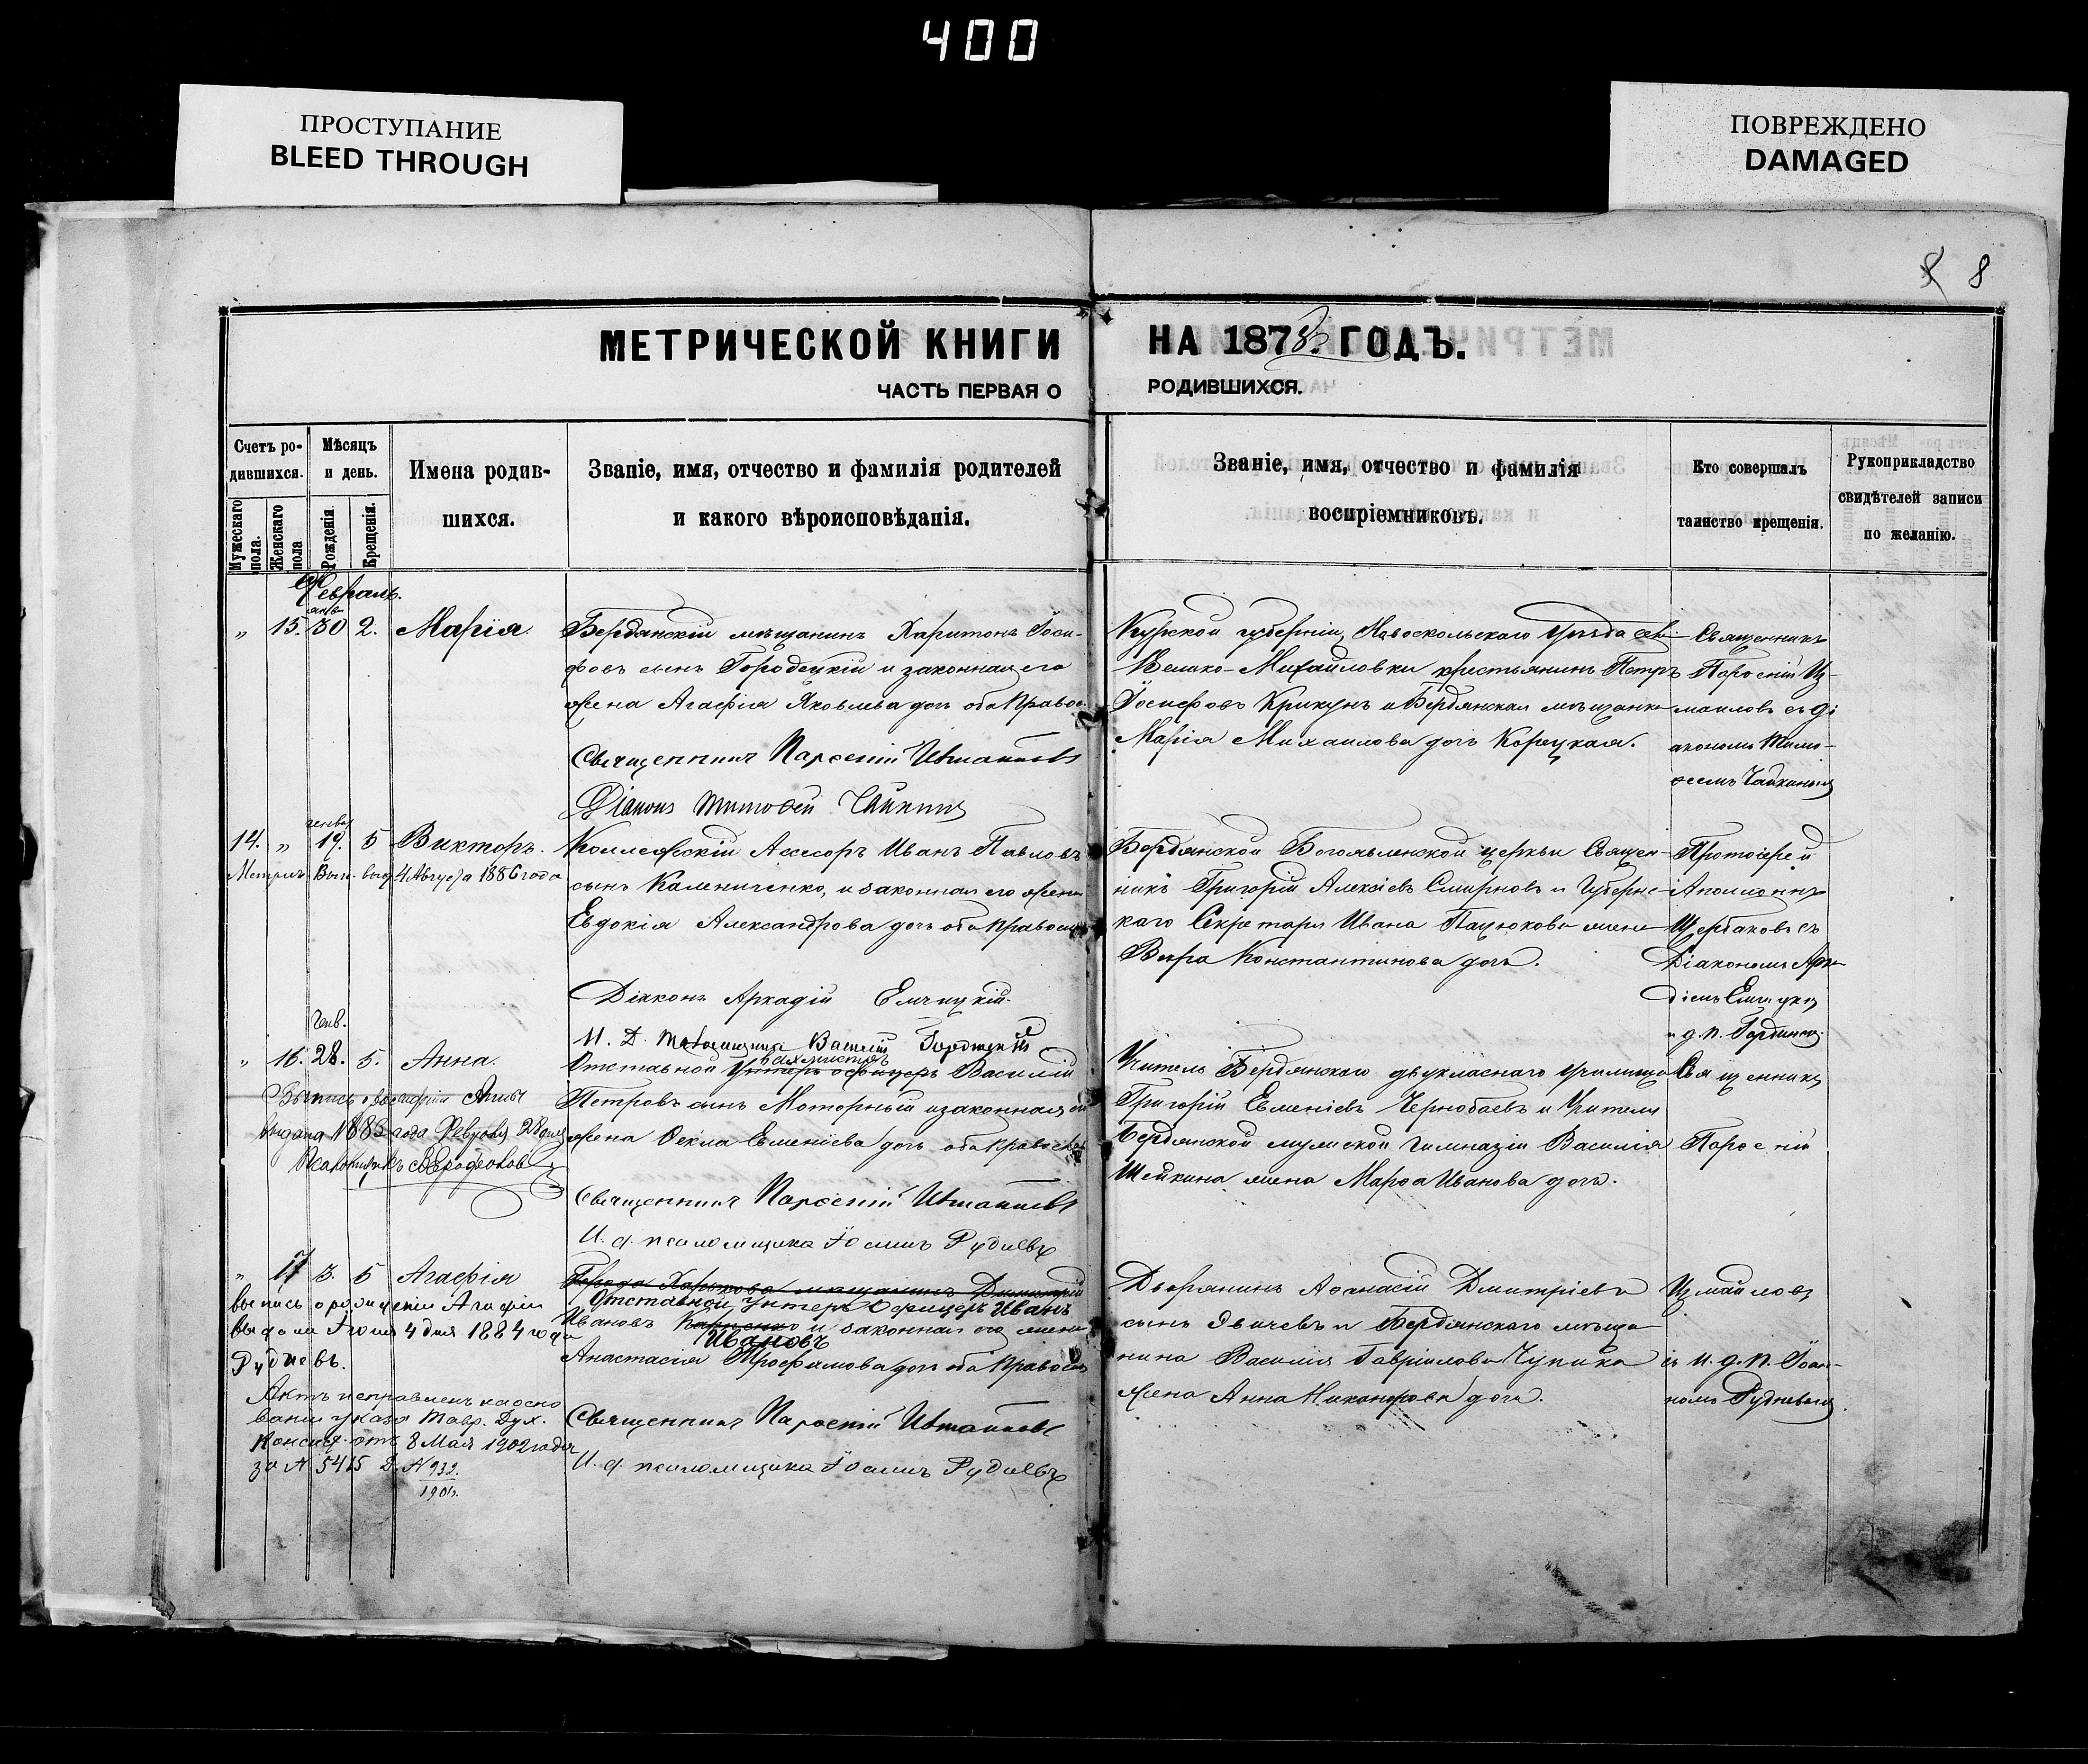 400
ПРОСТУПАНИЕ
BLEED THROUGH
ПОВРЕЖДЕНО
DAMAGED
8 8
МЕТРИЧЕСКОЙ КНИГИ НА 1878 ГОДЪ.
ЧАСТЬ ПЕРВАЯ О РОДИВШИХСЯ.
Счетъ ро-
дившихся.
Мужескаго пола.
Женскаго пола
Мѣсяцъ
и день.
Рожденія
Крещенія.
Имена родив-
шихся.
Званіе, имя, отчество и фамилія родителей
и какого вѣроисповѣданія.
Званіе, имя, отчество и фамилія
воспріемниковъ.
Кто совершалъ
таинство крещенія.
Рукоприкладство
свидѣтелей записи
по желанію.
Февраль.
„ 15. 30 2. Марія.
Бердянскій мѣщанинъ Харитонъ Іоси-
фовъ сынъ Городецкій и законная его
жена Агафія Яковлева дочь оба Правос.
Священникъ Парѳеній
Діаконъ Тимоѳей Чайкинъ
Курской губерніи, Новоскольскаго Уѣзда
Велико-Михайловки крестьянинъ Петръ
Іосифовъ Крикунъ и Бердянская мѣщанка
Марія Михаилова дочь Корецкая.
Священникъ
Парѳеній Из-
маиловъ съ Ді
акономъ Тимо-
ѳеемъ Чайкинымъ
генвар
14. „ 19. 5 Викторъ.
Метрич. Выпис. выд. 4 Августа 1886 года
Коллежскій Ассесоръ Иванъ Павловъ
сынъ Калениченко, и законная его жена
Евдокія Александрова дочь оба Правосл
Діаконъ Аркадій
И. Д. Василій
Бердянской Богоявленской церкви Священ-
никъ Григорій Алексіевъ Смирновъ и Губернс-
каго Секретаря Ивана Пацюкова жена
Вѣра Константинова дочь.
Протоіерей
Аполлонъ
Щербаковъ съ
Діакономъ Арка
діемъ
и д. п.
Генв.
„ 16. 28. 5. Анна.
Выпись о Анны
выдана 1885 года Февраля 28 дня
Псаломщикъ
вахмистръ
Отставной Унтеръ офицеръ Василій
Петровъ сынъ Моторный и законная его
жена Ѳекла Евменіева дочь оба Правосл
Священникъ Парѳеній
И. д. псаломщика Іоаннъ Рудневъ
Учитель Бердянскаго двукласнаго училища
Григорій Евменіевъ Чернобаевъ и Учителя
Бердянской мужской гимназіи Василія
Шейкина жена Марѳа Иванова дочь.
Священникъ
Парѳеній
„ 17 3. 5 Агафія
выпись о рожденіи Агафіи
выдана Іюня 4 дня 1884 года
Рудневъ.
Актъ исправленъ на осно
ваніи указа Тавр. Дух.
Консист. отъ 8 Мая 1902 года
за № 5415 Д. № 932.
1901.
Города Харькова мѣщанинъ Димитрій
Отставной Унтеръ Офицеръ Иванъ
Ивановъ и законная его жена
Ивановъ
Анастасія Трофимова дочь оба Правосл
Священникъ Парѳеній
И. д. псаломщика Іоаннъ Рудневъ
Дворянинъ Аѳанасій Дмитріевъ
сынъ и Бердянскаго мѣща
нина Василія Гавріилова Чупика
жена Анна Никанорова дочь.
Измайловъ
съ И. д. п. Іоан-
номъ Рудневымъ.